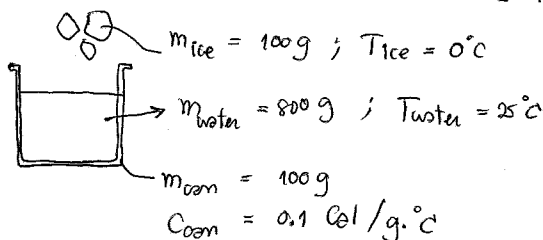 m ice = 100 g ; T ice = 0°C
m water = 800 g ; T water = 25°C
m can = 100 g
C can = 0.1 Cal/g.°C